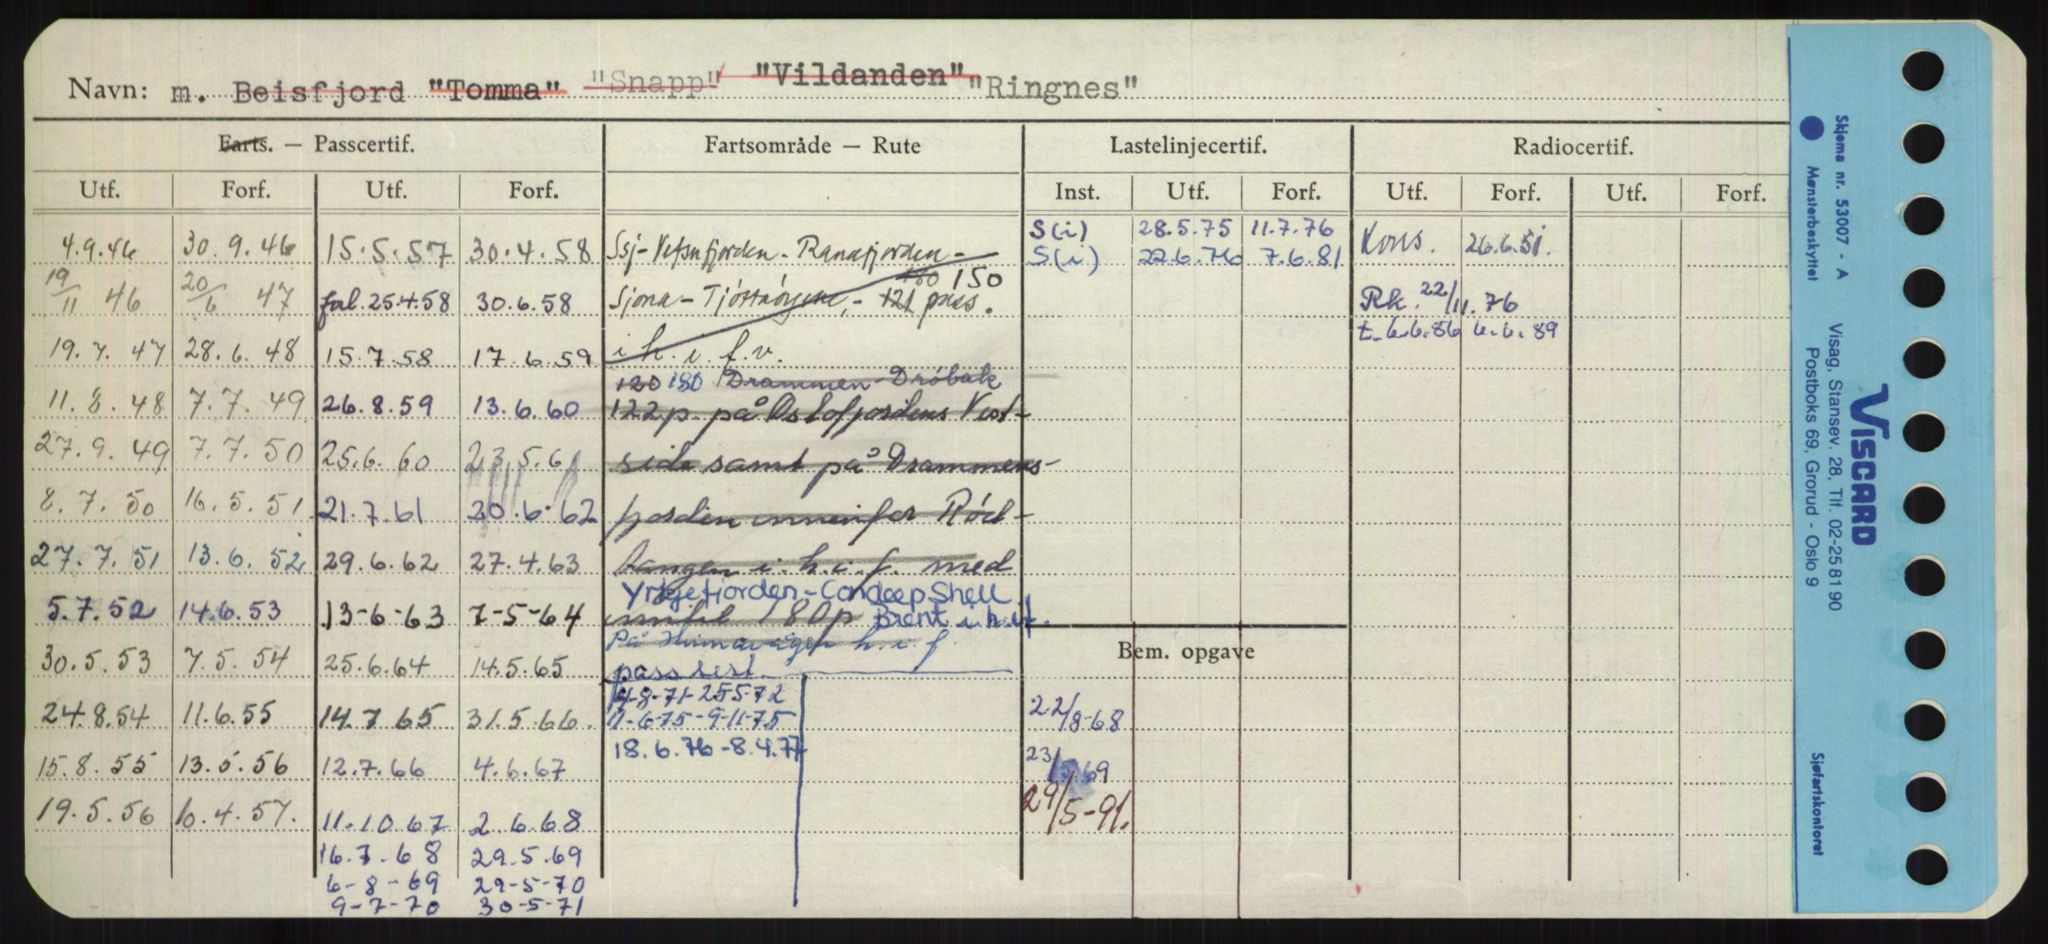 Navn: m. Beisfjord "Tomma" "Snapp" "Vildanden" "Ringnes"
Farts. — Passcertif. Fartsområde — Rute Lastelinjecertif. Radiocertif.
Utf. Forf. Utf. Forf. Inst. Utf. Forf. Utf. Forf. Utf. Forf.
S(i) 28.5.75 11.7.76
4.9.46 30.9.46 15.5.57 30.4.58 Ssj-Vefsnfjorden-Ranafjorden- S(i) 22.6.76 7.6.81 Kons. 26.6.51.
150
19/11 46 20/6 47 fal. 25.4.58 30.6.58 Sjona- - 121 pass. Rk. 22/11.76
t. 6.6.86 6.6.89
19.7.47 28.6.48 15.7.58 17.6.59 i h. i. f. v.
120 180 Drammen-Drøbak
11.8.48 7.7.49 26.8.59 13.6.60 122 p. på Oslofjordens Vest-
27.9.49 7.7.50 25.6.60 23.5.61 side samt på Drammens-
8.7.50 16.5.51 21.7.61 20.6.62 fjorden innenfor Rød-
27.7.51 13.6.52 29.6.62 27.4.63 tangen i. h. i. f. med
Yrkjefjorden-Condeep Shell
5.7.52 14.6.53 13-6-63 7-5-64 inntil 180p Brent i. h. i. f.
På h. i. f.
30.5.53 7.5.54 25.6.64 14.5.65 pass sert. Bem. opgave
9-8-71-25572
24.8.54 11.6.55 14.7.65 31.5.66. 11-6-75-9-11-75 22/8-68
18.6.76-8.4.77
15.8.55 13.5.56 12.7.66 4.6.67 23/5.69
19.5.56 6.4.57. 11.10.67 2.6.68 29/5-91.
16.7.68 29.5.69
6-8-69 29-5-70
9-7-70 30-5-71
Skjema nr. 53007 - A
Mønsterbeskyttet
Visag, Stansev. 28, Tlf. 02-25 81 90
Postboks 69, Grorud - Oslo 9
VISCARD
Sjøfartskontoret